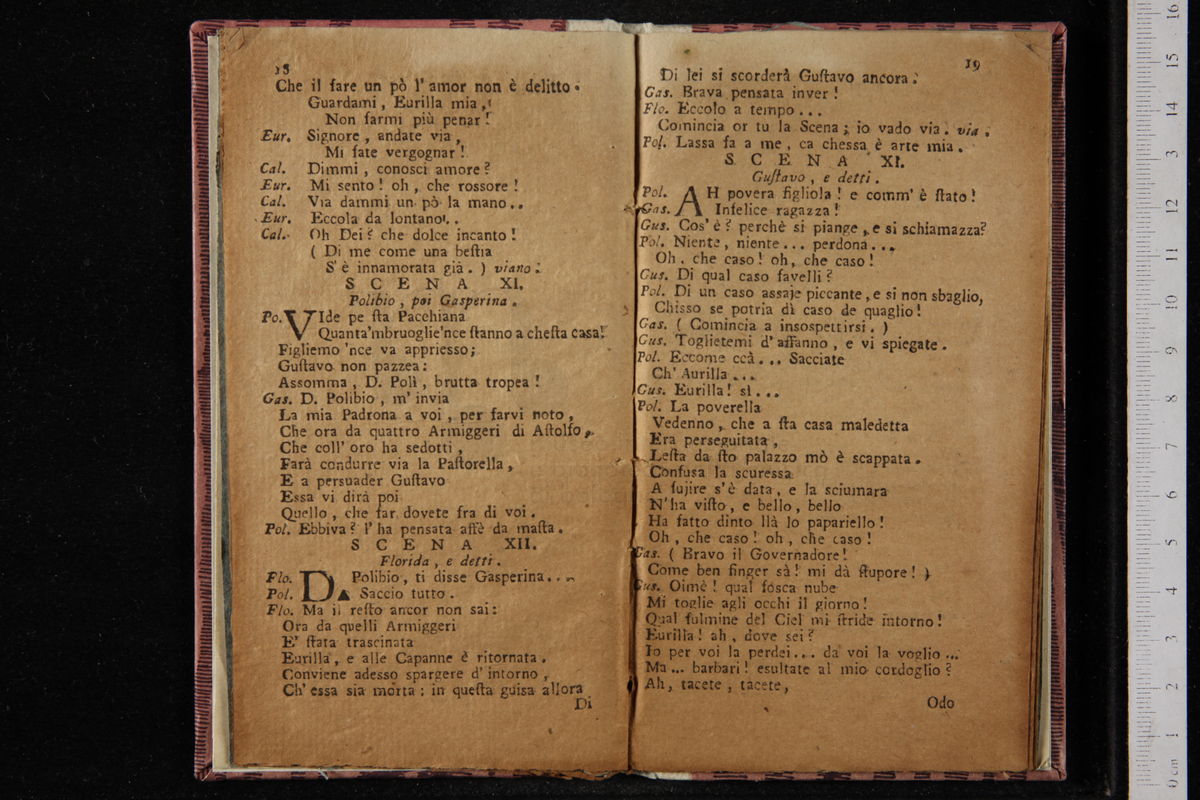 18
Che il fare un pò l' amor non è delitto.
Guardami, Eurilla mia,
Non farmi più penar!
Eur. Signore, andate via,
Mi fate vergognar!
Cal. Dimmi, conosci amore?
Eur. Mi sento! oh, che rossore!
Cal. Via dammi un pò la mano..
Eur. Eccola da lontano..
Cal. Oh Dei? che dolce incanto!
( Di me come una beſtia
S' è innamorata già. ) viano.
SCENA XI.
Polibio, poi Gasperina.
Po. VIde pe ſta Pacchiana
Quanta'mbruoglie'nce ſtanno a cheſta casa!
Figliemo 'nce va appriesso;
Guſtavo non pazzea:
Assomma, D. Polì, brutta tropea!
Gas. D. Polibio, m' invia
La mia Padrona a voi, per farvi noto,
Che ora da quattro Armiggeri di Aſtolfo,
Che coll' oro ha sedotti,
Farà condurre via la Paſtorella,
E a persuader Guſtavo
Essa vi dirà poi
Quello, che far dovete fra di voi.
Pol. Ebbiva? l' ha pensata affè da maſta.
SCENA XII.
Florida, e detti.
Flo. DA Polibio, ti disse Gasperina...
Pol. Saccio tutto.
Flo. Ma il reſto ancor non sai:
Ora da quelli Armiggeri
E' ſtata trascinata
Eurilla, e alle Capanne è ritornata.
Conviene adesso spargere d' intorno,
Ch' essa sia morta: in queſta guisa allora
Di
19
Di lei si scorderà Guſtavo ancora.
Gas. Brava pensata inver!
Flo. Eccolo a tempo...
Comincia or tu la Scena; io vado via. via.
Pol. Lassa fa a me, ca chessa è arte mia.
SCENA XI.
Guſtavo, e detti.
Pol. AH povera figliola! e comm' è ſtato!
Gas. Infelice ragazza!
Gus. Cos' è? perchè si piange, e si schiamazza?
Pol. Niente, niente... perdona...
Oh, che caso! oh, che caso!
Gus. Di qual caso favelli?
Pol. Di un caso assaje piccante, e si non sbaglio,
Chisso se potria dì caso de quaglio!
Gas. ( Comincia a insospettirsi. )
Gus. Toglietemi d' affanno, e vi spiegate.
Pol. Eccome ccà... Sacciate
Ch' Aurilla...
Gus. Eurilla! sì...
Pol. La poverella
Vedenno, che a ſta casa maledetta
Era perseguitata,
Leſta da ſto palazzo mò è scappata.
Confusa la scuressa
A fujire s' è data, e la sciumara
N' ha viſto, e bello, bello
Ha fatto dinto llà lo papariello!
Oh, che caso! oh, che caso!
Gas. ( Bravo il Governadore!
Come ben finger sà! mi dà ſtupore! )
Gus. Oimè! qual fosca nube
Mi toglie agli occhi il giorno!
Qual fulmine del Ciel mi ſtride intorno!
Eurilla! ah, dove sei?
Io per voi la perdei... da voi la voglio...
Ma... barbari! esultate al mio cordoglio?
Ah, tacete, tacete,
Odo
0 cm 1 2 3 4 5 6 7 8 9 10 11 12 13 14 15 16